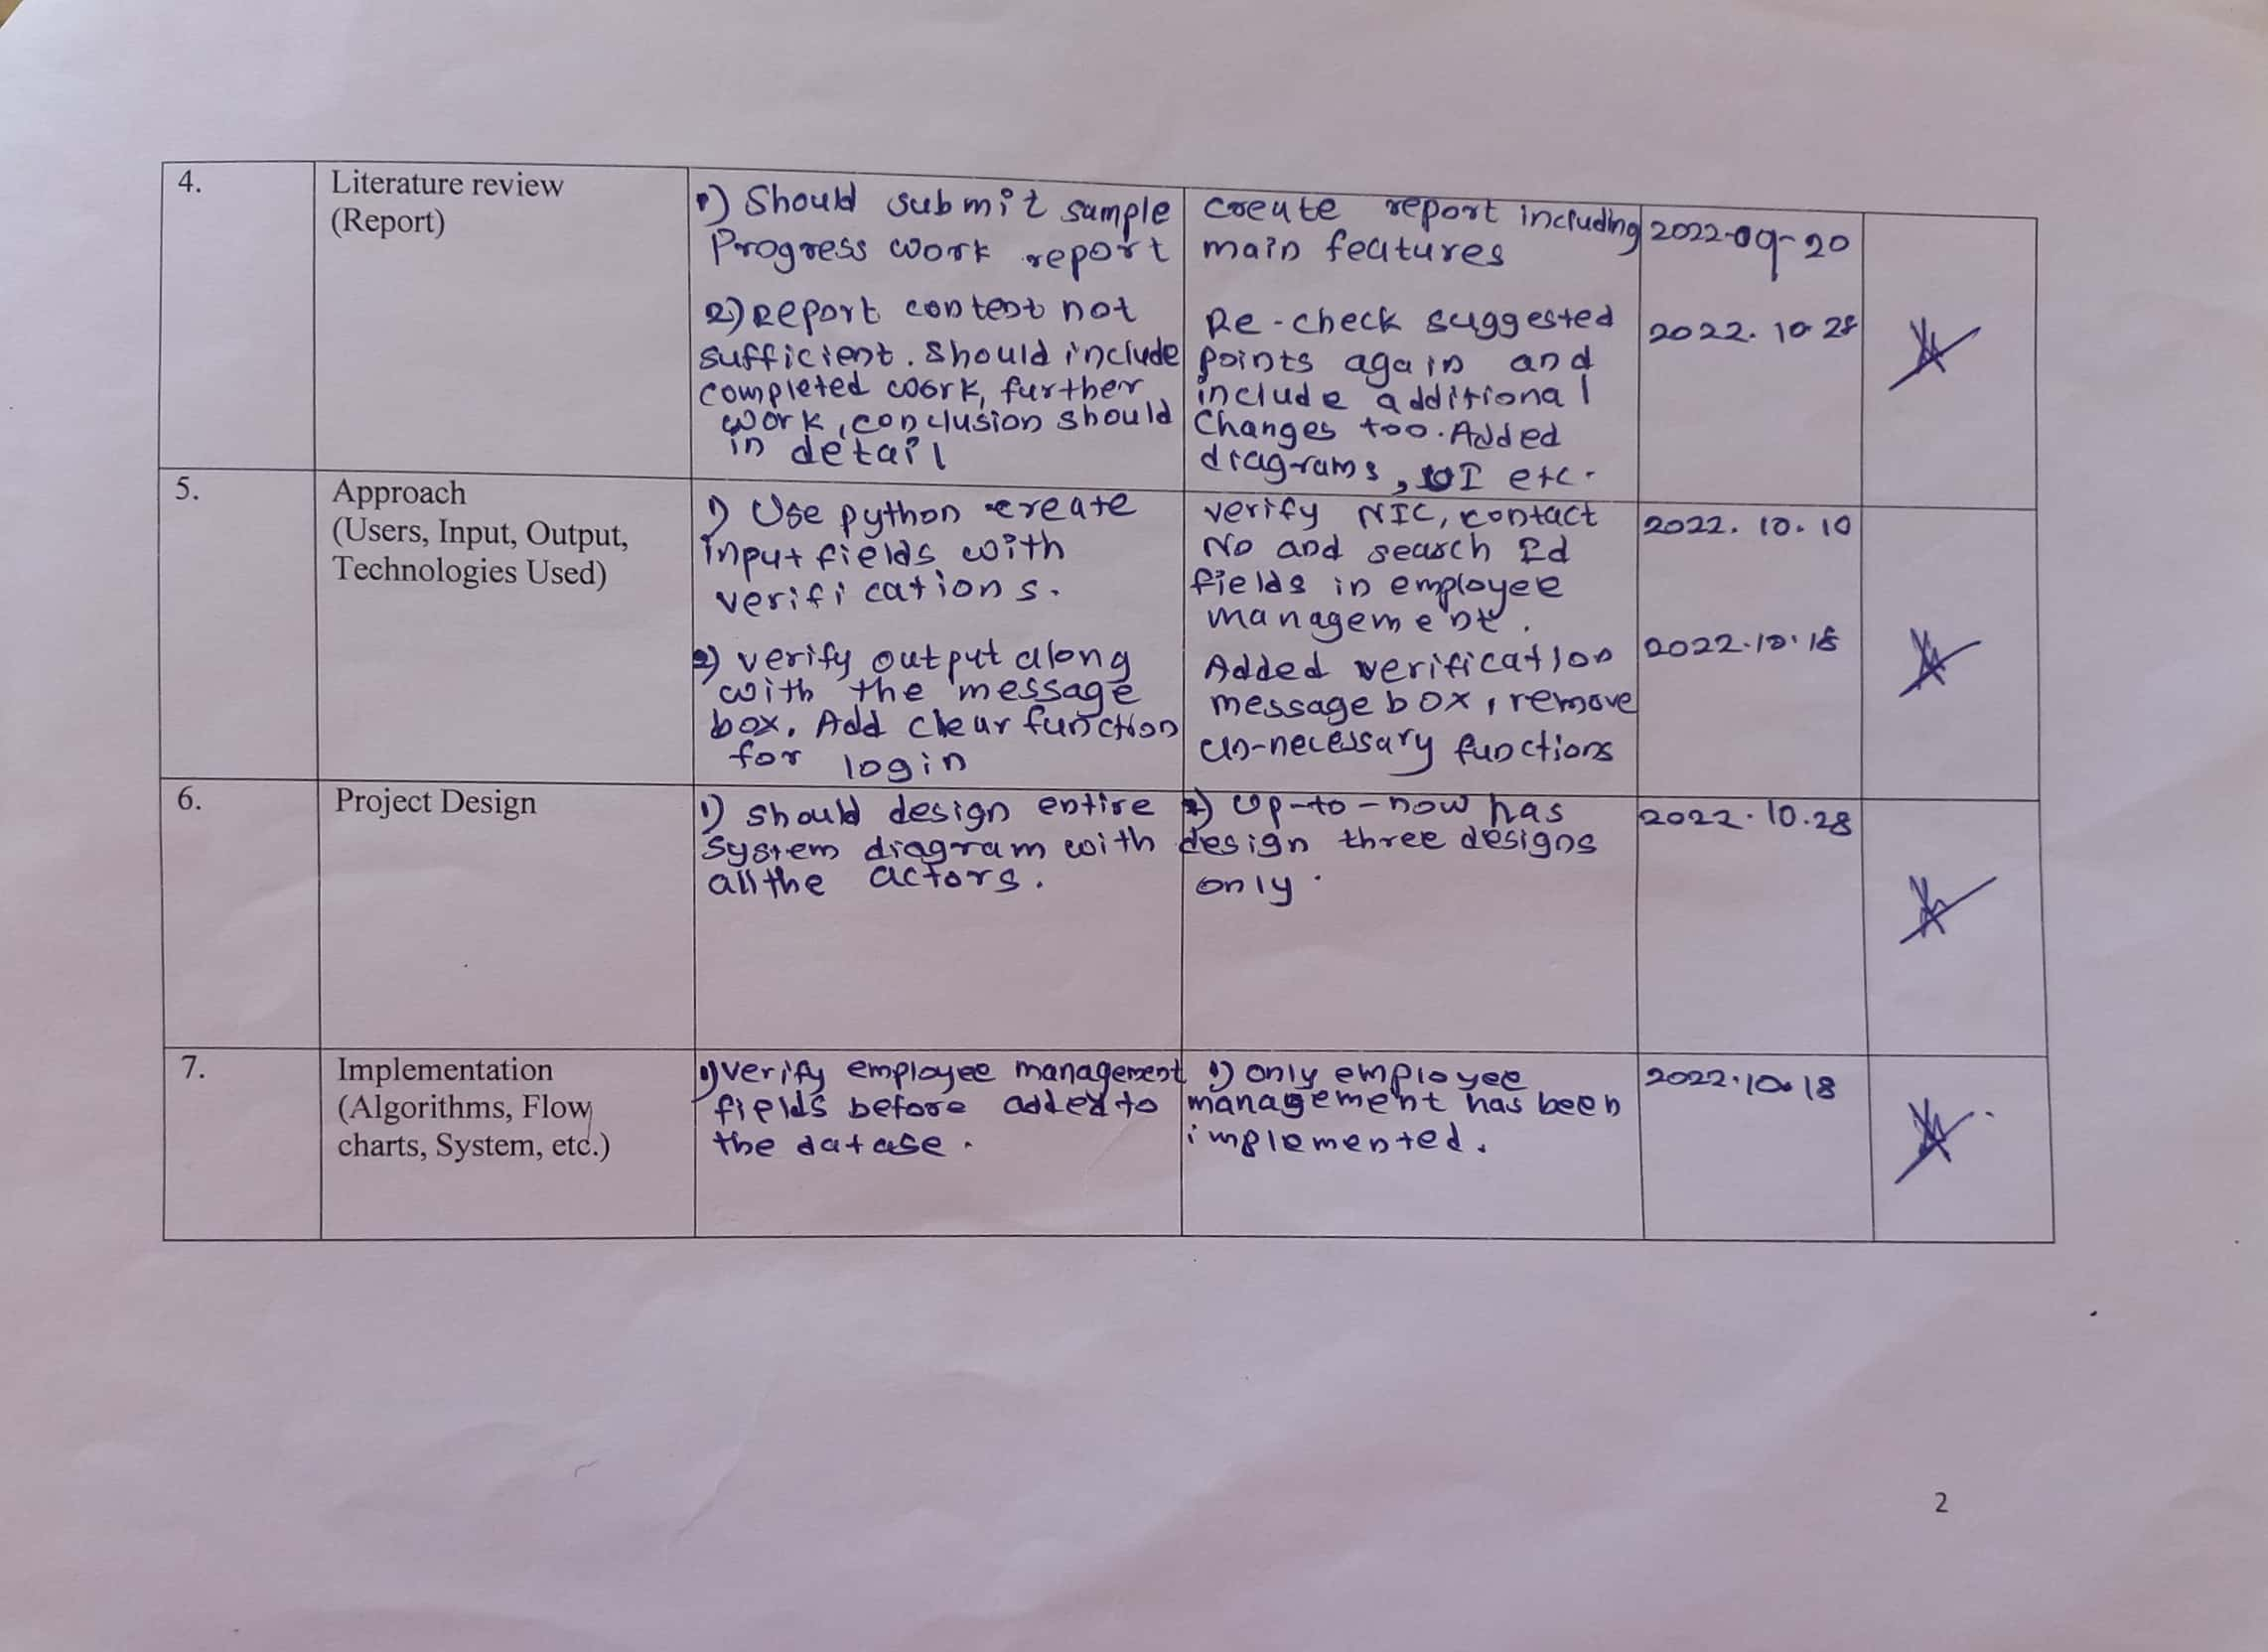 4.
Literature review
(Report)
1) Should submit sample
Progress work report
2) Report content not
sufficient. Should include
completed work, further
work, conclusion should
in detail
Create report including
main features
Re-check suggested
points again and
include additional
Changes too. Added
diagrams, UI etc.
2022-09-20
2022. 10 28
5.
Approach
(Users, Input, Output,
Technologies Used)
1) Use python create
input fields with
verifications.
2) verify output along
with the message
box. Add clear function
for login
verify NIC, contact
No and search Id
fields in employee
management.
Added verification
message box, remove
un-necessary functions
2022. 10. 10
2022.10.18
6.
Project Design
1) should design entire
system diagram with
all the actors.
1) Up-to-now has
design three designs
only.
2022.10.28
7.
Implementation
(Algorithms, Flow
charts, System, etc.)
1) verify employee management
fields before added to
the datase.
1) only employee
management has been
implemented.
2022.10.18
2